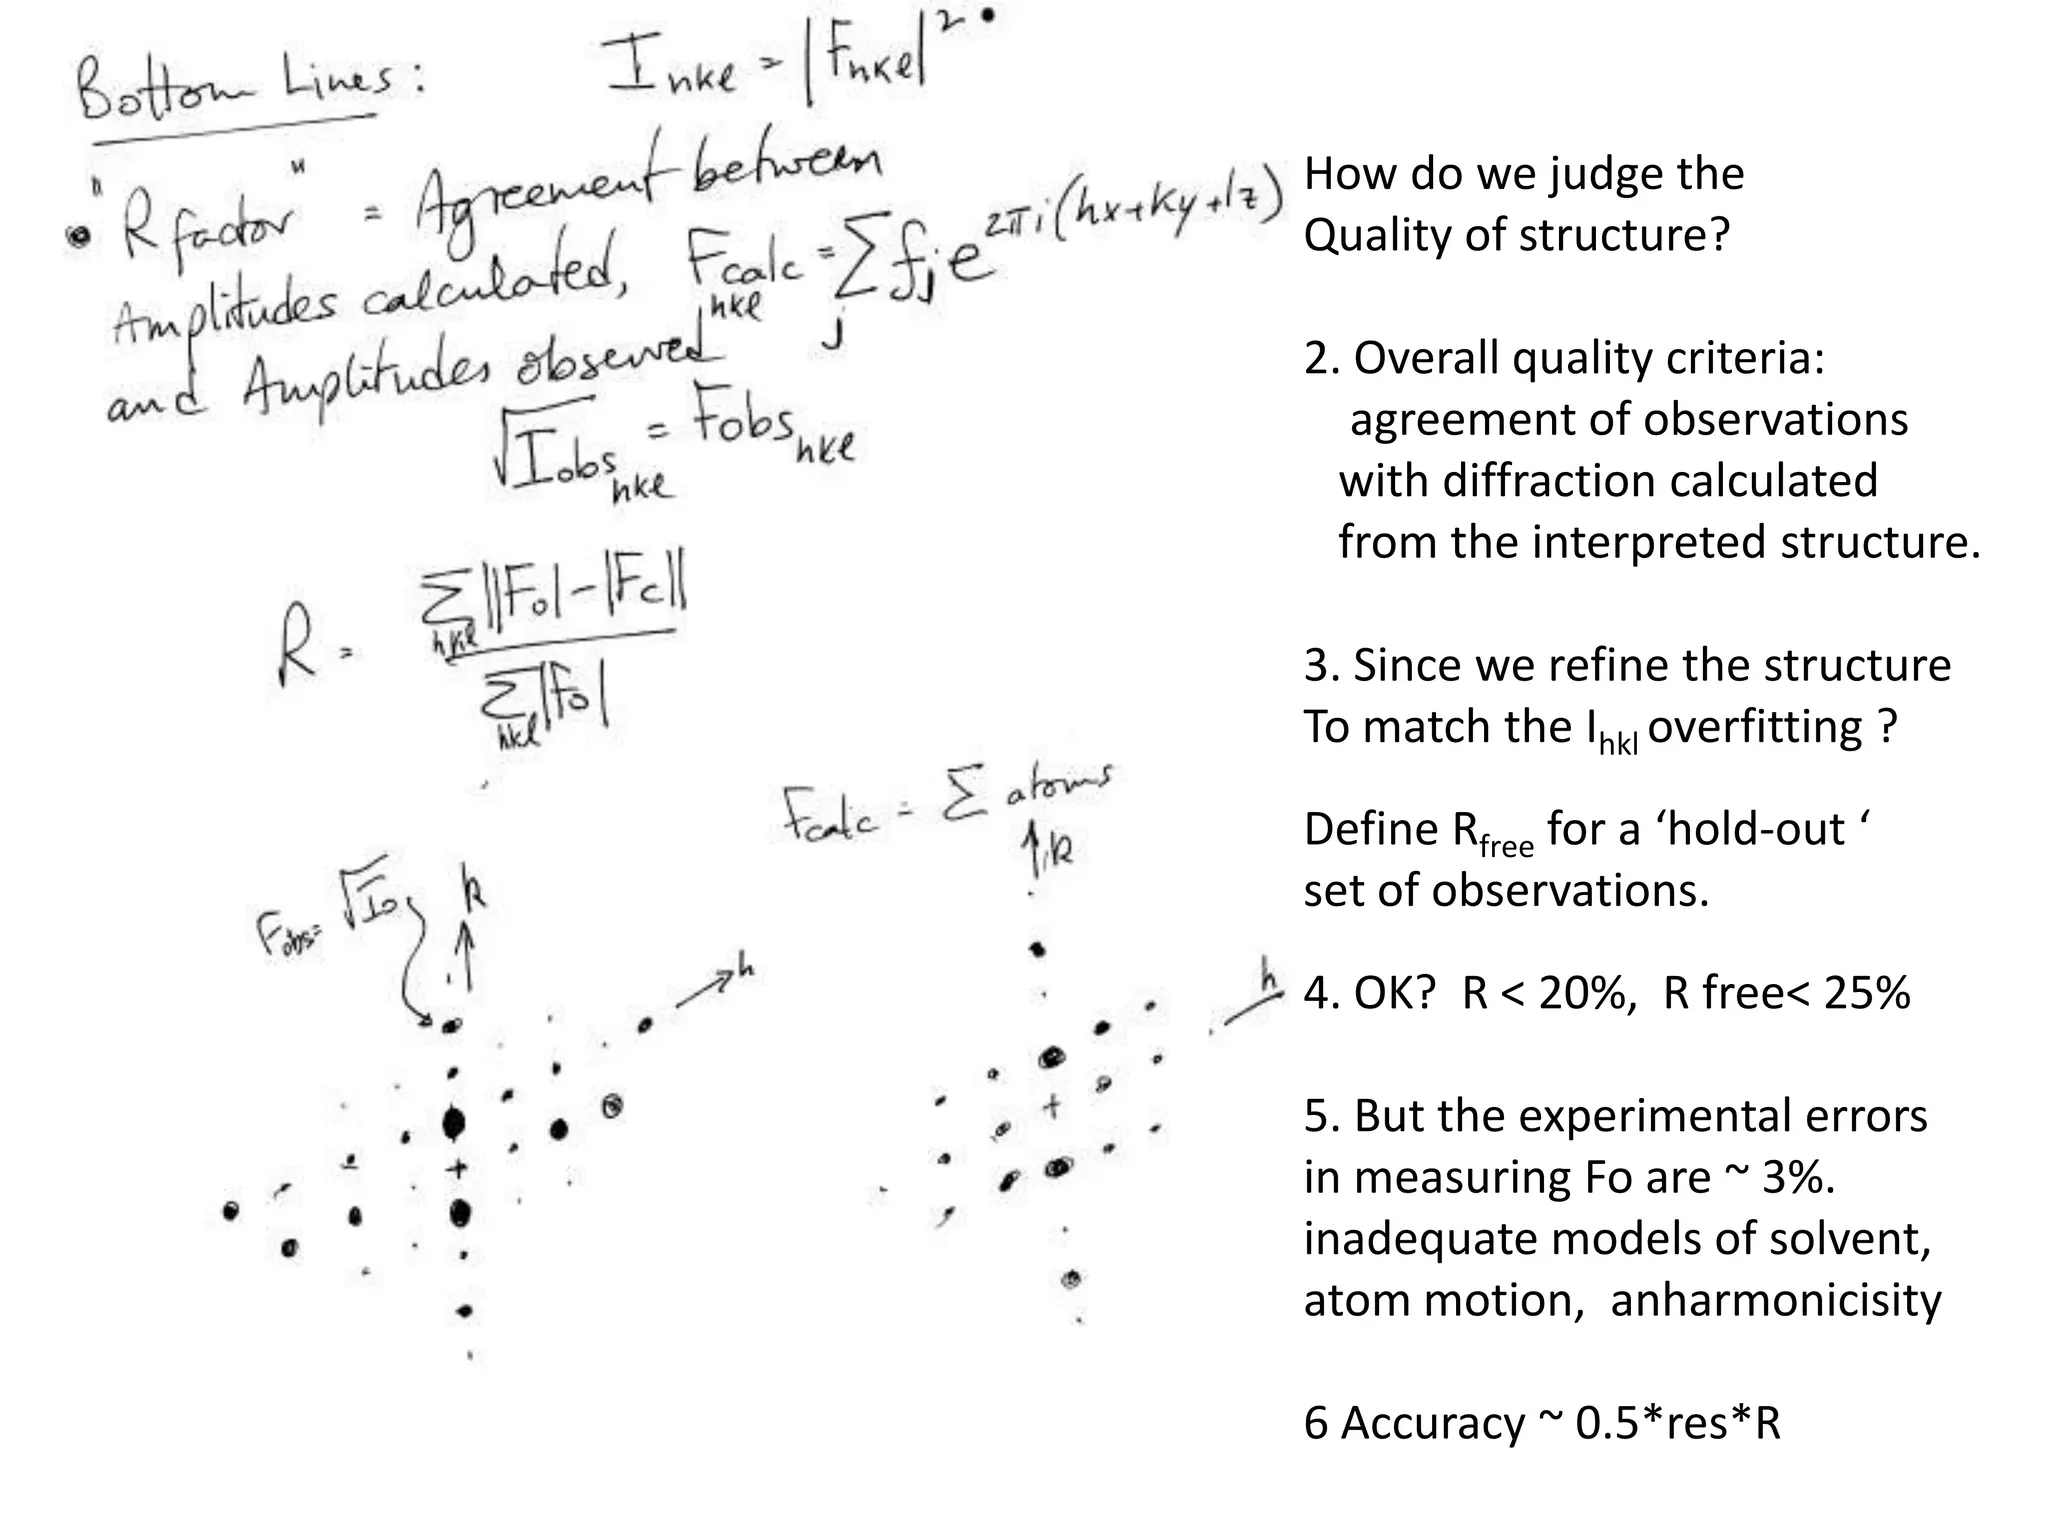 Bottom Lines:
I hkl = |F hkl|² •
• "R factor" = Agreement between
Amplitudes calculated, F calc hkl = Σ j fj e 2πi(hx+ky+lz)
and Amplitudes observed
√I obs hkl = F obs hkl
R = Σ hkl ||Fo| - |Fc|| / Σ hkl |Fo|
F calc = Σ atoms
k
F obs = √Io
k
h
h
How do we judge the
Quality of structure?
2. Overall quality criteria:
agreement of observations
with diffraction calculated
from the interpreted structure.
3. Since we refine the structure
To match the Ihkl overfitting ?
Define Rfree for a ‘hold-out ‘
set of observations.
4. OK? R < 20%, R free< 25%
5. But the experimental errors
in measuring Fo are ~ 3%.
inadequate models of solvent,
atom motion, anharmonicisity
6 Accuracy ~ 0.5*res*R